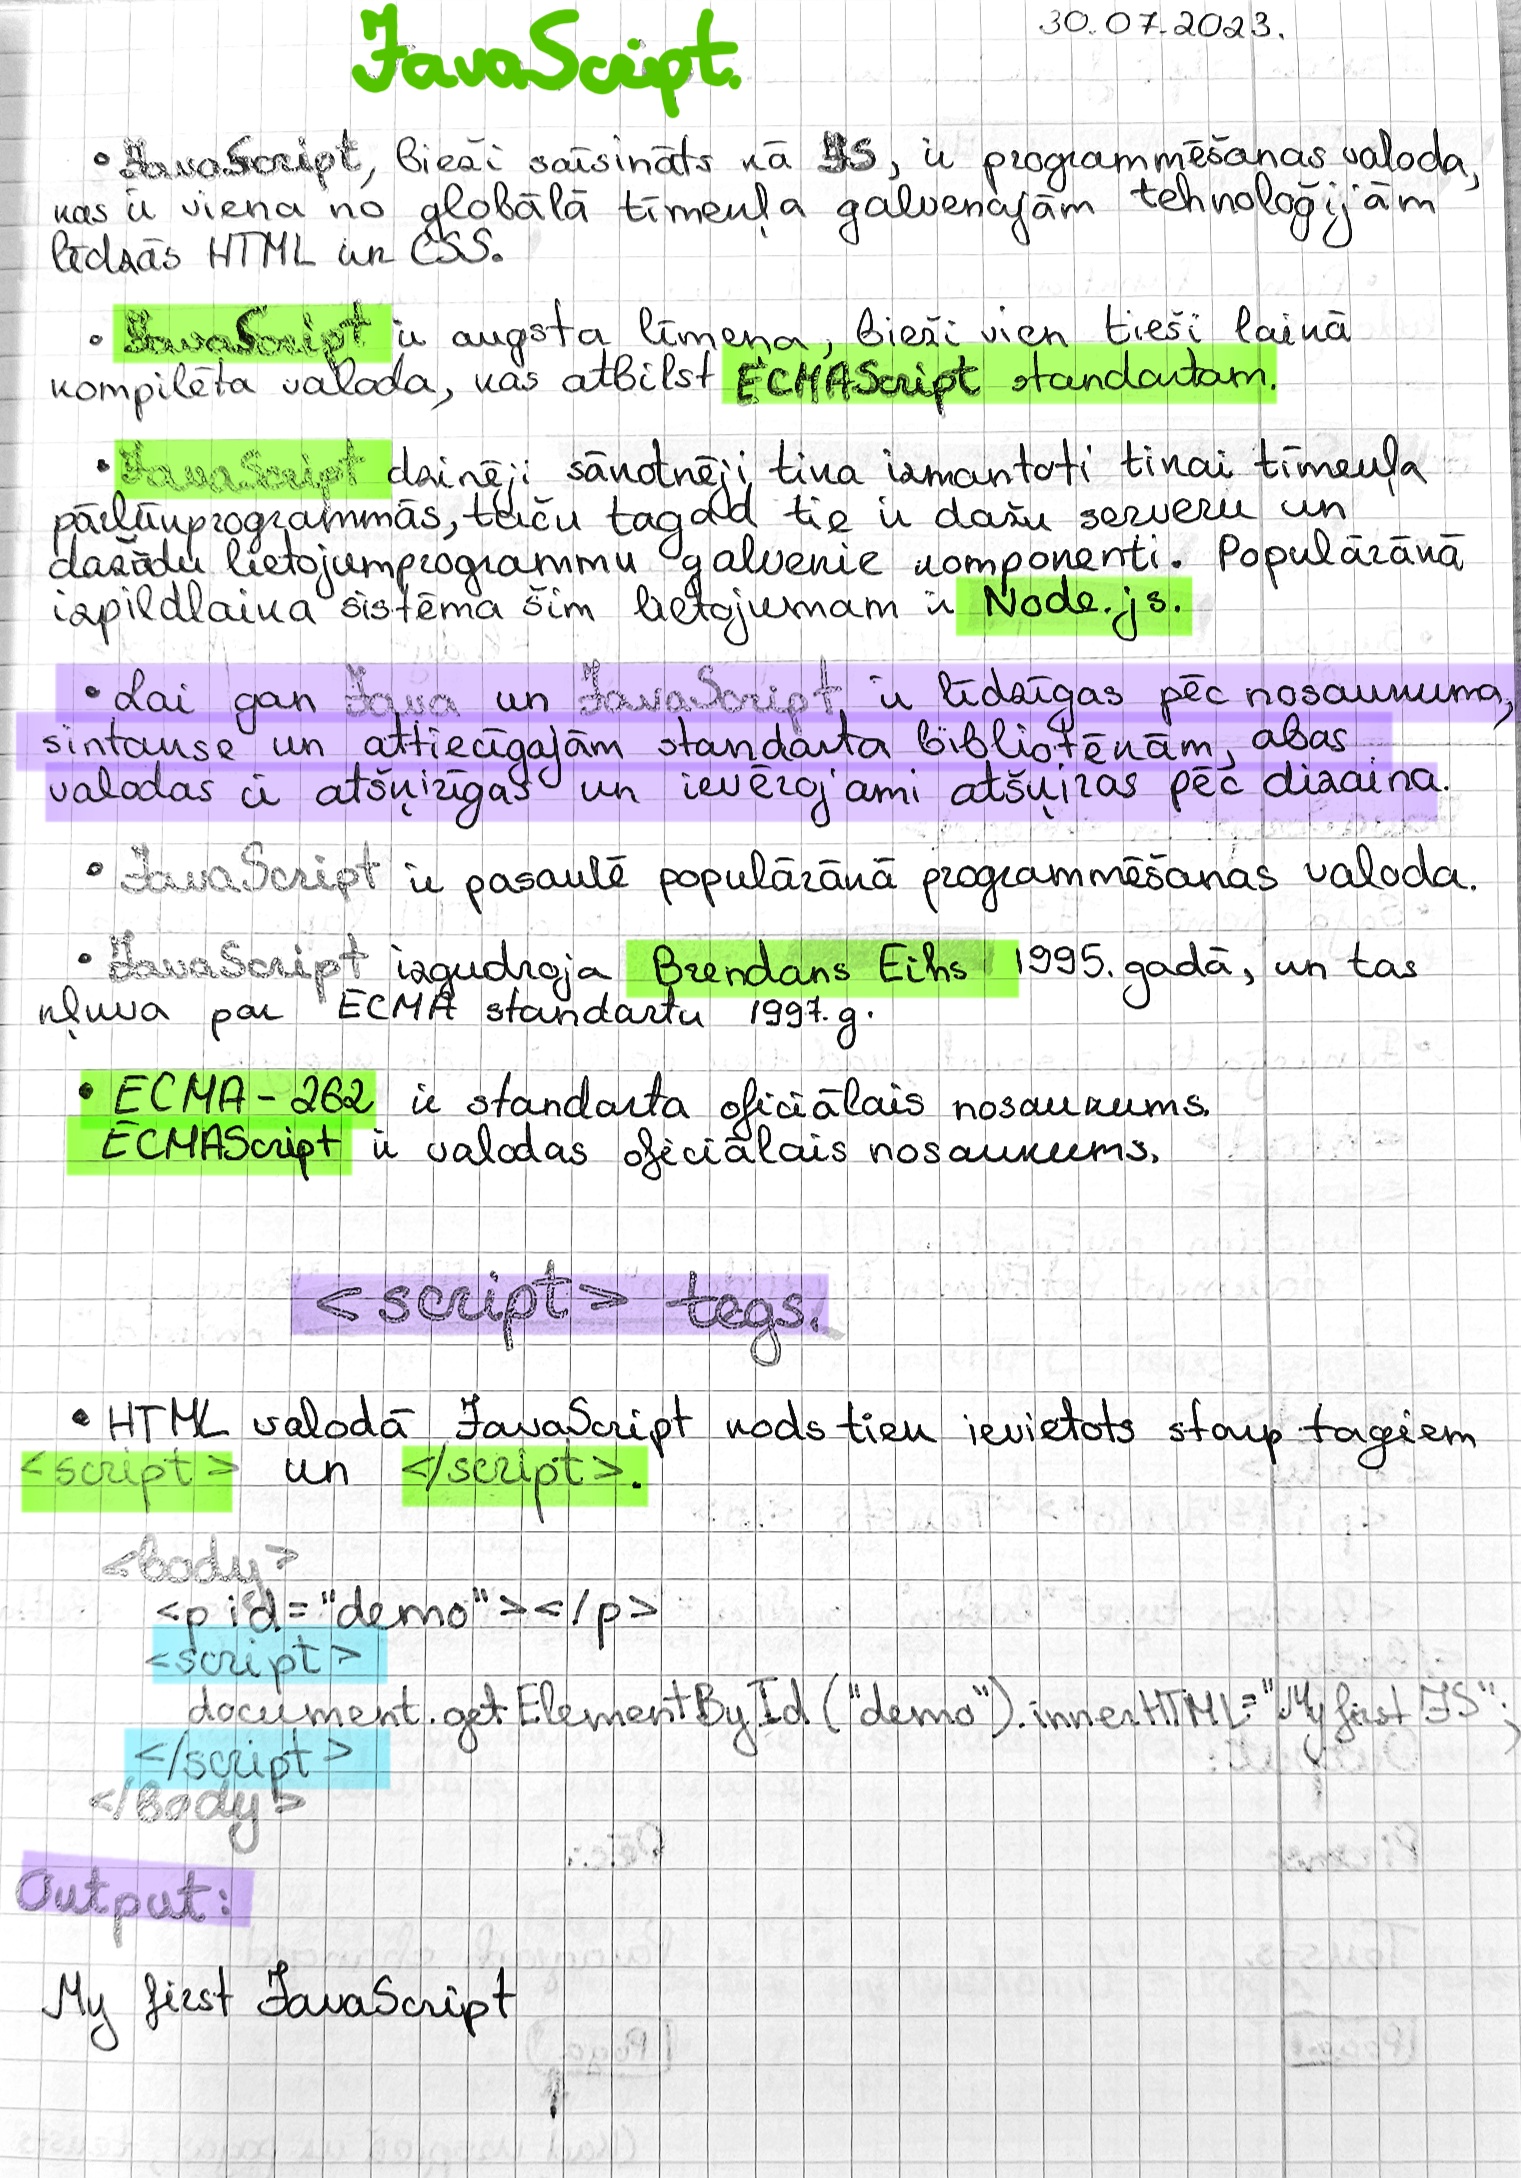 JavaScript.
30.07.2023.
• JavaScript, bieži saīsināts kā JS, ir programmēšanas valoda,
kas ir viena no globālā tīmekļa galvenajām tehnoloģijām
līdzās HTML un CSS.
• JavaScript ir augsta līmeņa, bieži vien tieši laikā
kompilēta valoda, kas atbilst ECMAScript standartam.
• JavaScript dzinēji sākotnēji tika izmantoti tikai tīmekļa
pārlūkprogrammās, taču tagad tie ir dažu serveru un
dažādu lietojumprogrammu galvenie komponenti. Populārākā
izpildlaika sistēma šim lietojumam ir Node.js.
• Lai gan Java un JavaScript ir līdzīgas pēc nosaukuma,
sintakse un attiecīgajām standarta bibliotēkām, abas
valodas ir atšķirīgas un ievērojami atšķiras pēc dizaina.
• JavaScript ir pasaulē populārākā programmēšanas valoda.
• JavaScript izgudroja Brendans Eihs 1995. gadā, un tas
kļuva par ECMA standartu 1997. g.
• ECMA-262 ir standarta oficiālais nosaukums.
ECMAScript ir valodas oficiālais nosaukums.
<script> tegs.
• HTML valodā JavaScript kods tiek ievietots starp tagiem
<script> un </script>.
<body>
<p id="demo"></p>
<script>
document.getElementById("demo").innerHTML="My first JS";
</script>
</body>
Output:
My first JavaScript